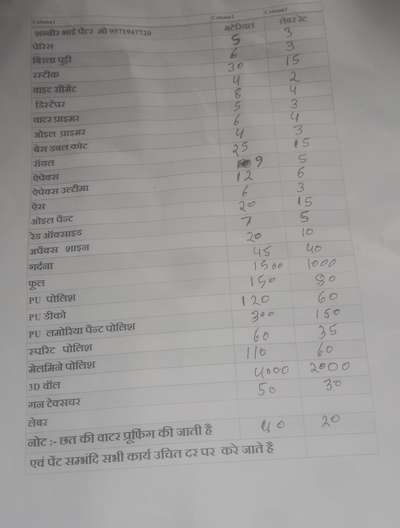 Column1 Column2 Column3
शब्बीर भाई पेंटर मो 9871947720 मटेरियल लेबर रेट
पेरिस 5 3
बिरला पुट्टी 6 3
रस्टीक 30 15
वाइट सीमेंट 4 2
डिस्टेंपर 8 4
वाटर प्राइमर 5 3
ओइल प्राइमर 6 4
बेस डबल कोट 4 3
रॉयल 25 15
ऐपेक्स 9 5
ऐपेक्स उल्टीमा 12 6
ऐस 6 3
ओइल पैन्ट 20 15
रेड ऑक्साइड 7 5
अपेक्स शाइन 20 10
गर्दना 45 40
फूल 1500 1000
PU पोलिश 150 80
PU डीको 120 60
PU लमोरिया पैन्ट पोलिश 300 150
स्परिट पोलिश 60 35
मेलमिने पोलिश 110 60
3D वॉल 4000 2000
गन टेक्सचर 50 30
लेबर
नोट :- छत की वाटर प्रूफिंग की जाती है 40 20
एवं पेंट सम्भंदि सभी कार्य उचित दर पर करे जाते है